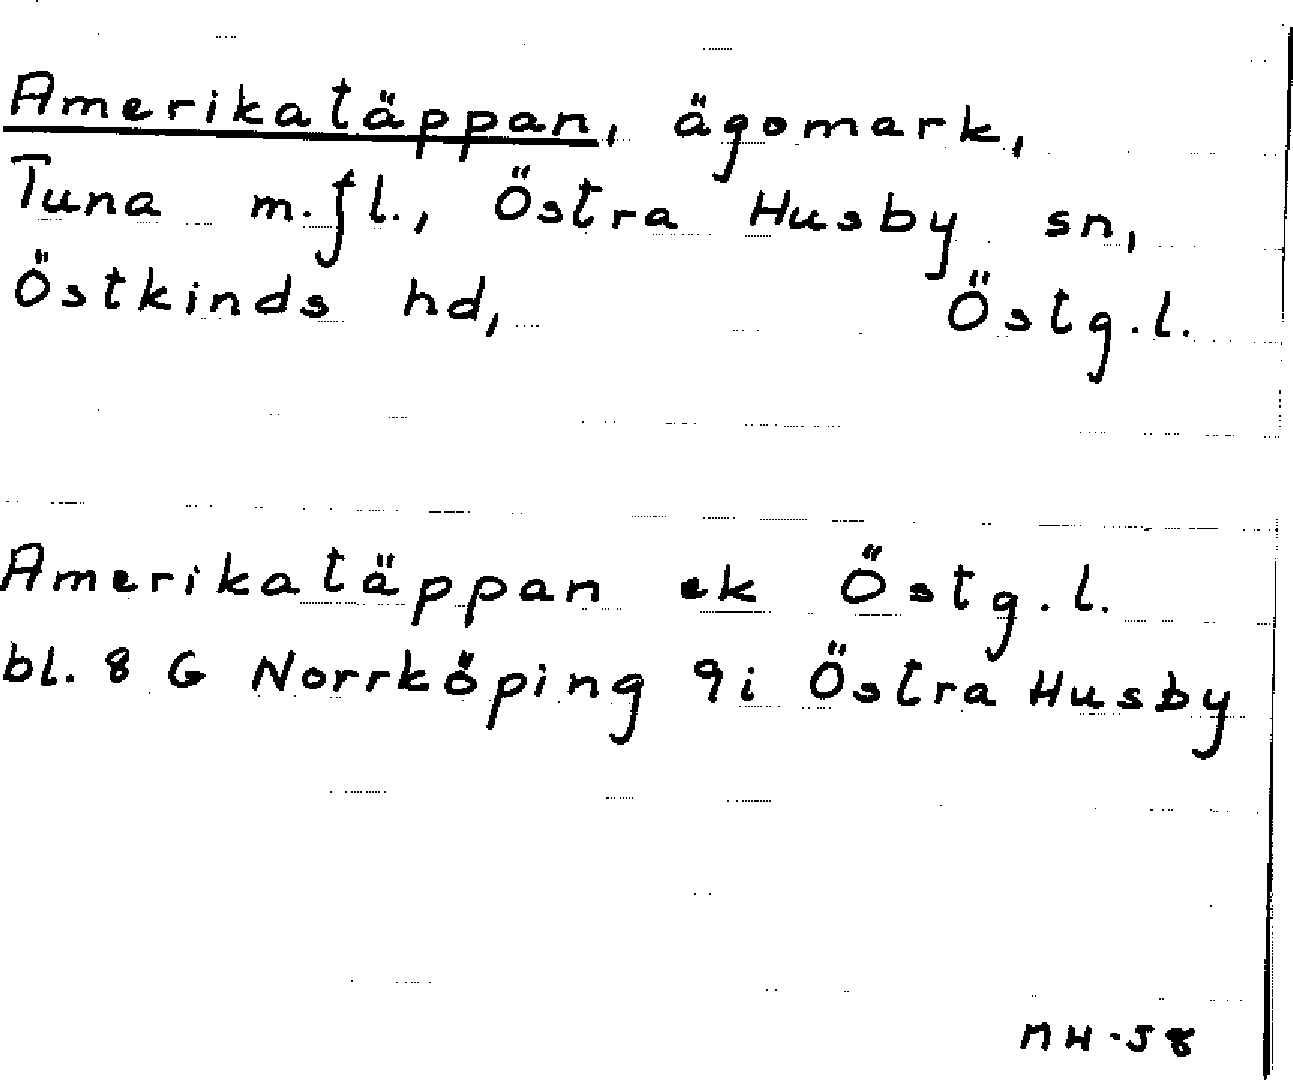 Amerikatäppan, ägomark,
Tuna m.fl., Östra Husby sn,
Östkinds hd, Östg.l.
Amerikatäppan ek Östg.l.
bl. 8 G Norrköping 9i Östra Husby
MH-58